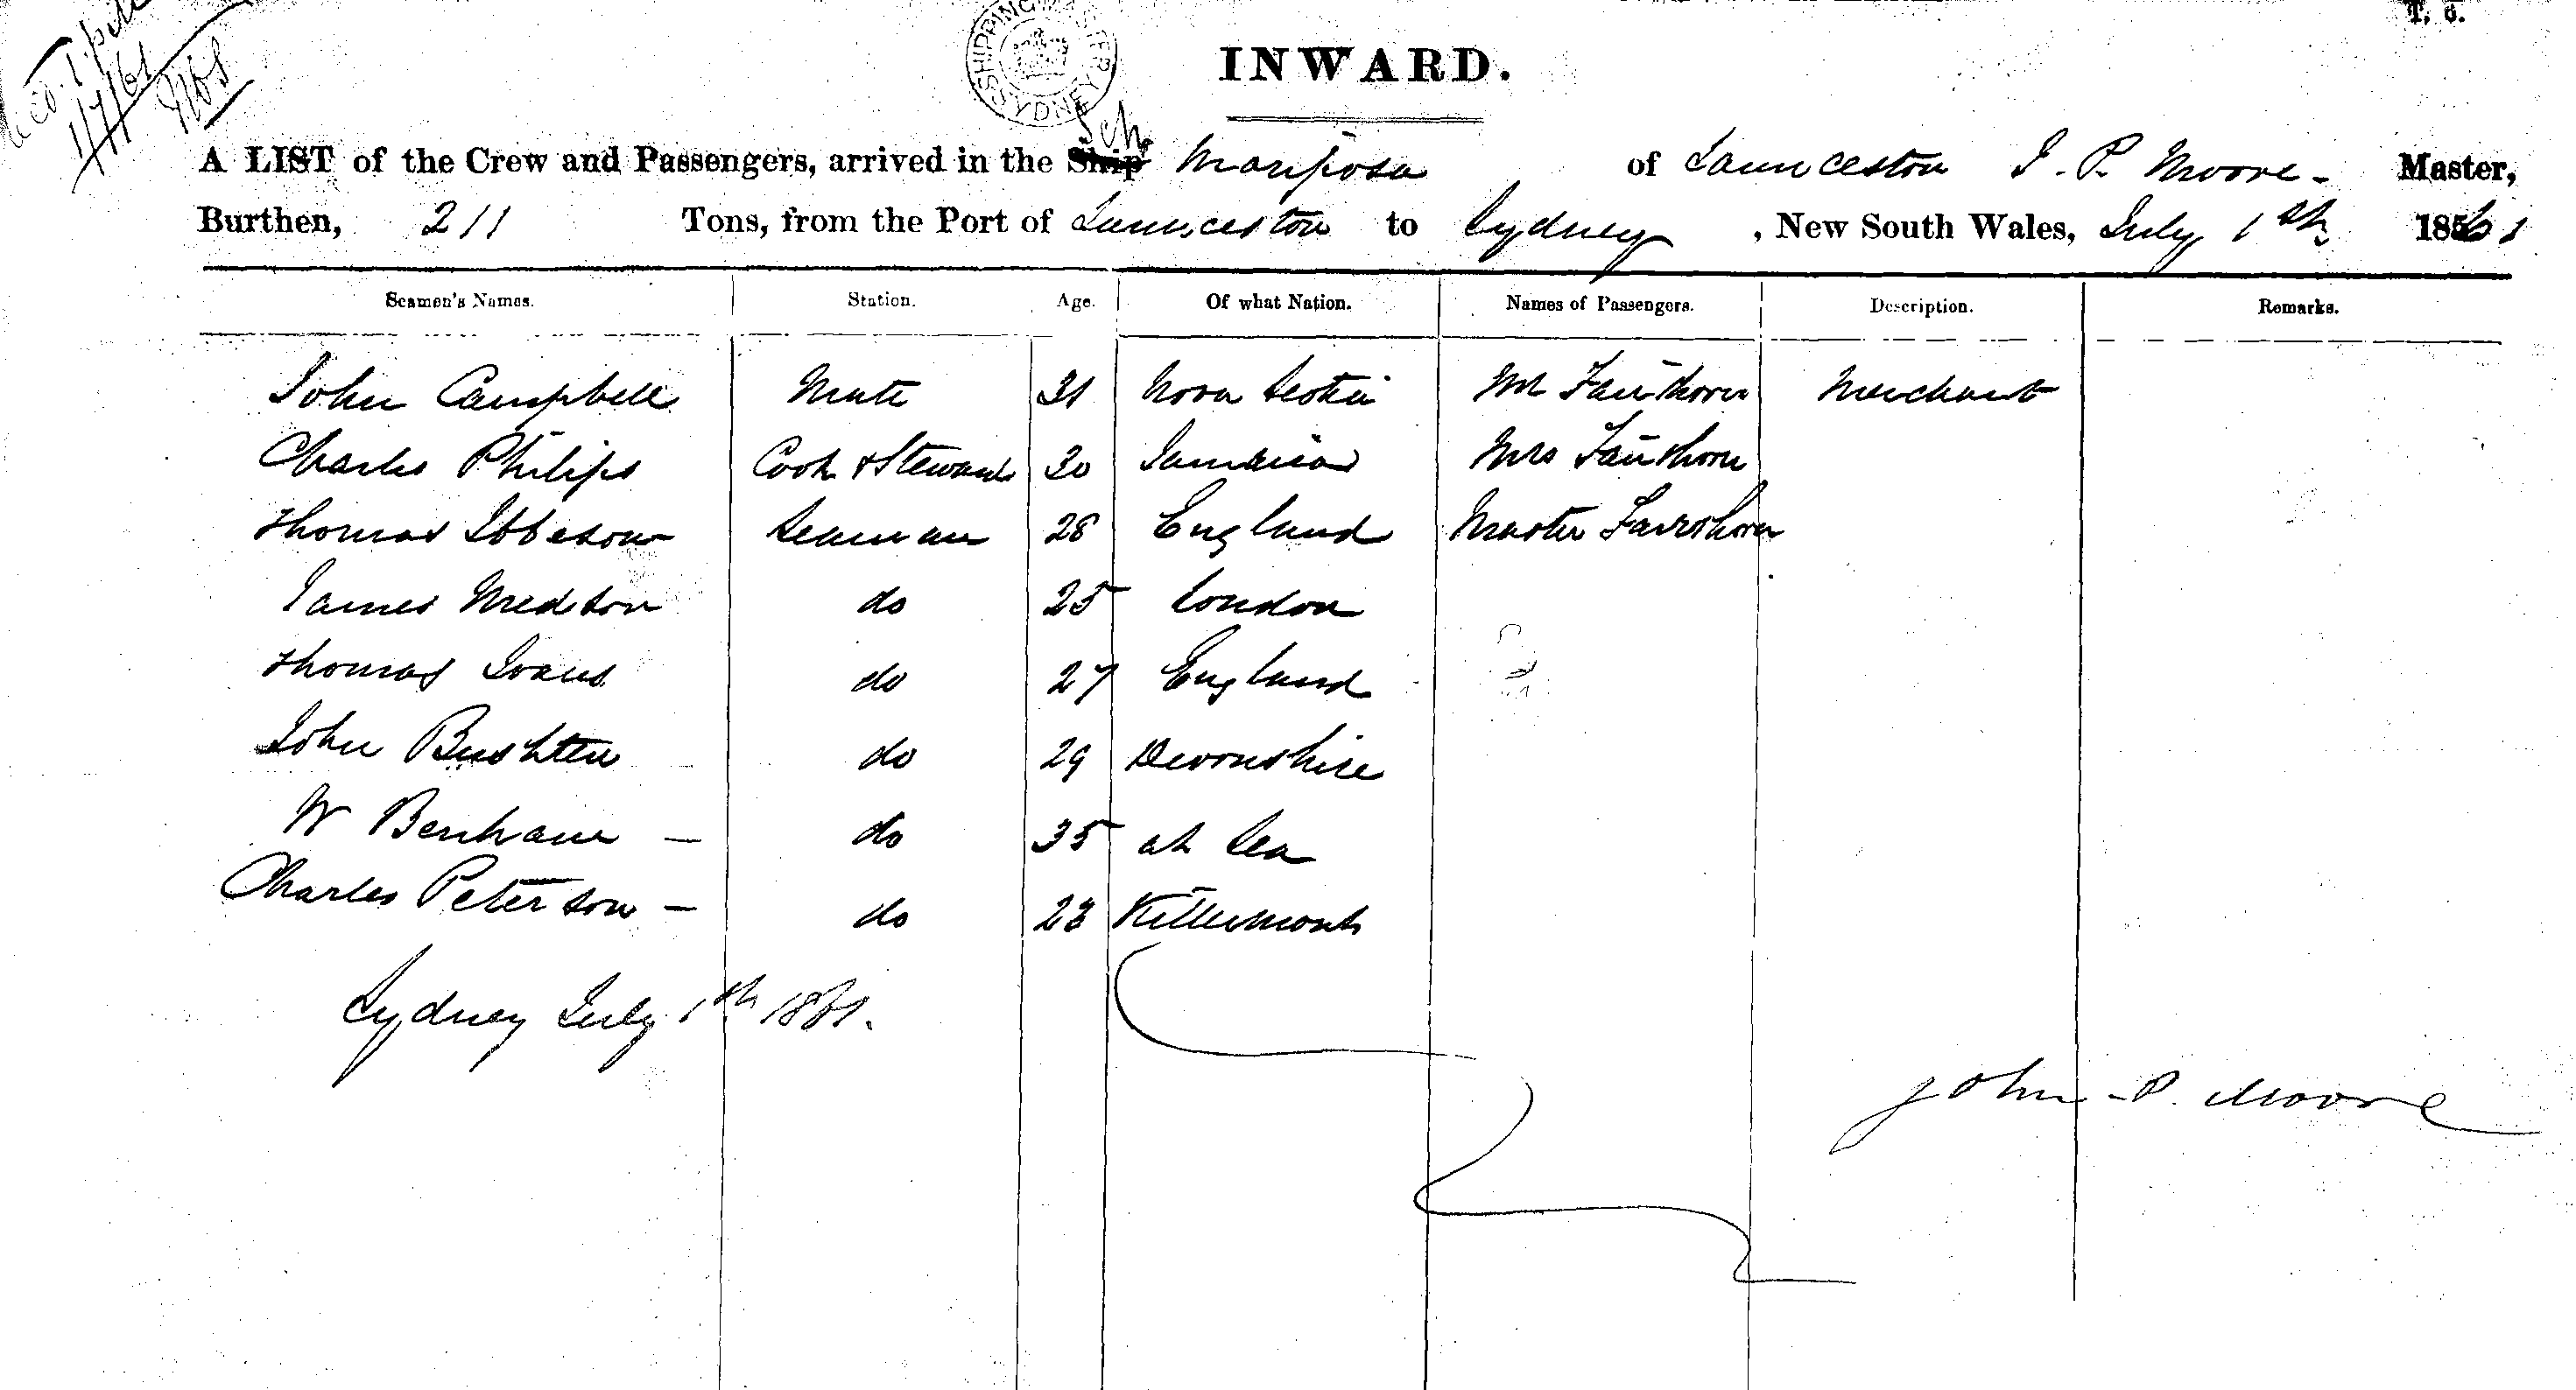 T. 6.
1/7/61
SHIPPING MASTER SYDNEY
INWARD.
A LIST of the Crew and Passengers, arrived in the Ship Sch. Mariposa of Launceston J. P. Moore - Master,
Burthen, 211 Tons, from the Port of Launceston to Sydney, New South Wales, July 1st 1861
Seamen's Names. Station. Age. Of what Nation. Names of Passengers. Description. Remarks.
John Campbell Mate 31 Nova Scotia Mr Fairthorn Merchant
Charles Philips Cook & Steward 30 Jamaica Mrs Fairthorn
Thomas Ibbeson Seaman 28 England Master Fairthorn
James do 25 London
Thomas Ivans do 27 England
John do 29 Devonshire
W Benham - do 35 at Sea
Charles Peterson - do 23
Sydney July 1st 1861.
John P. Moore